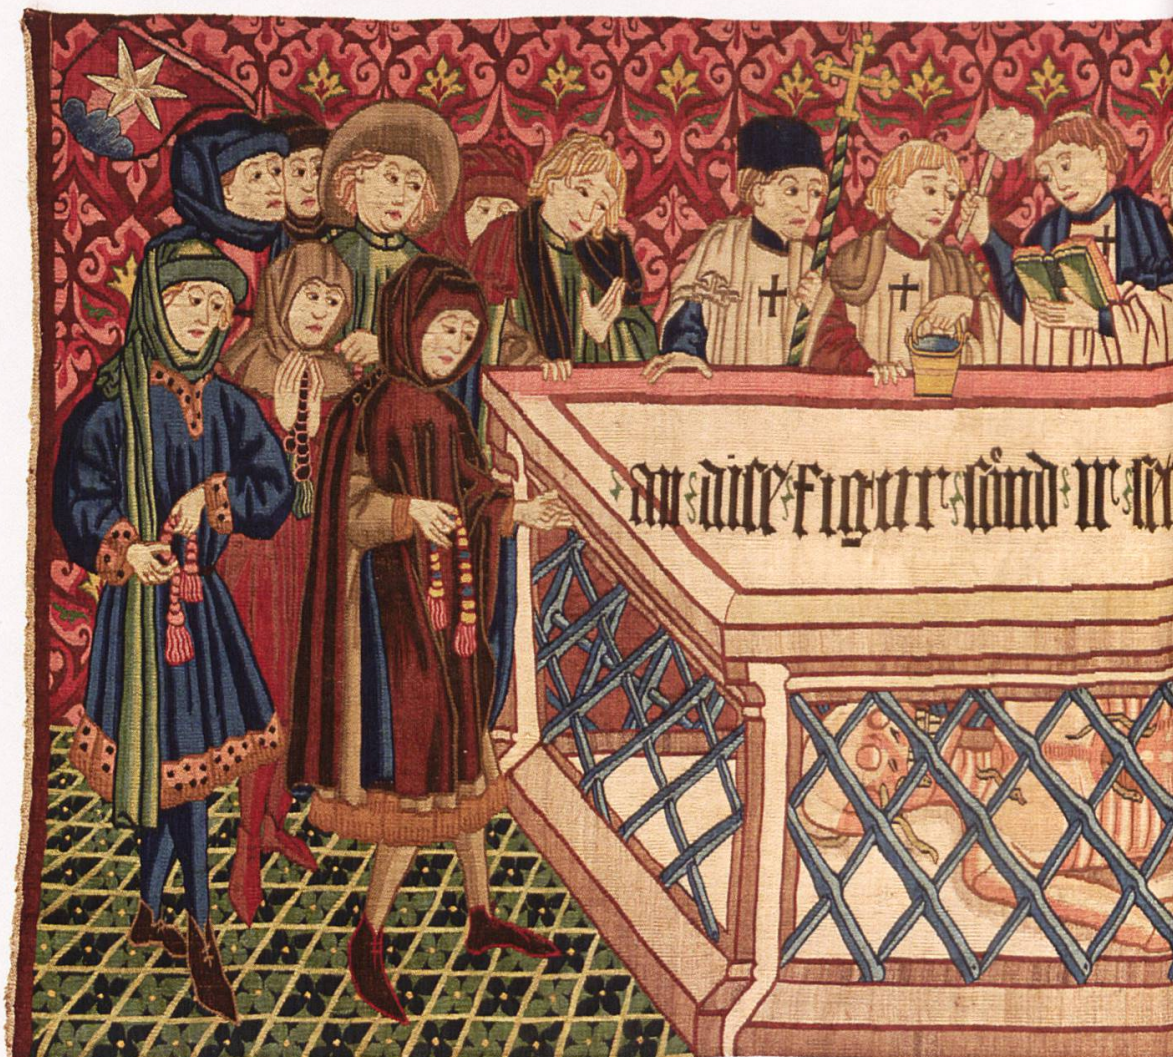 an dise figur sönd ir se